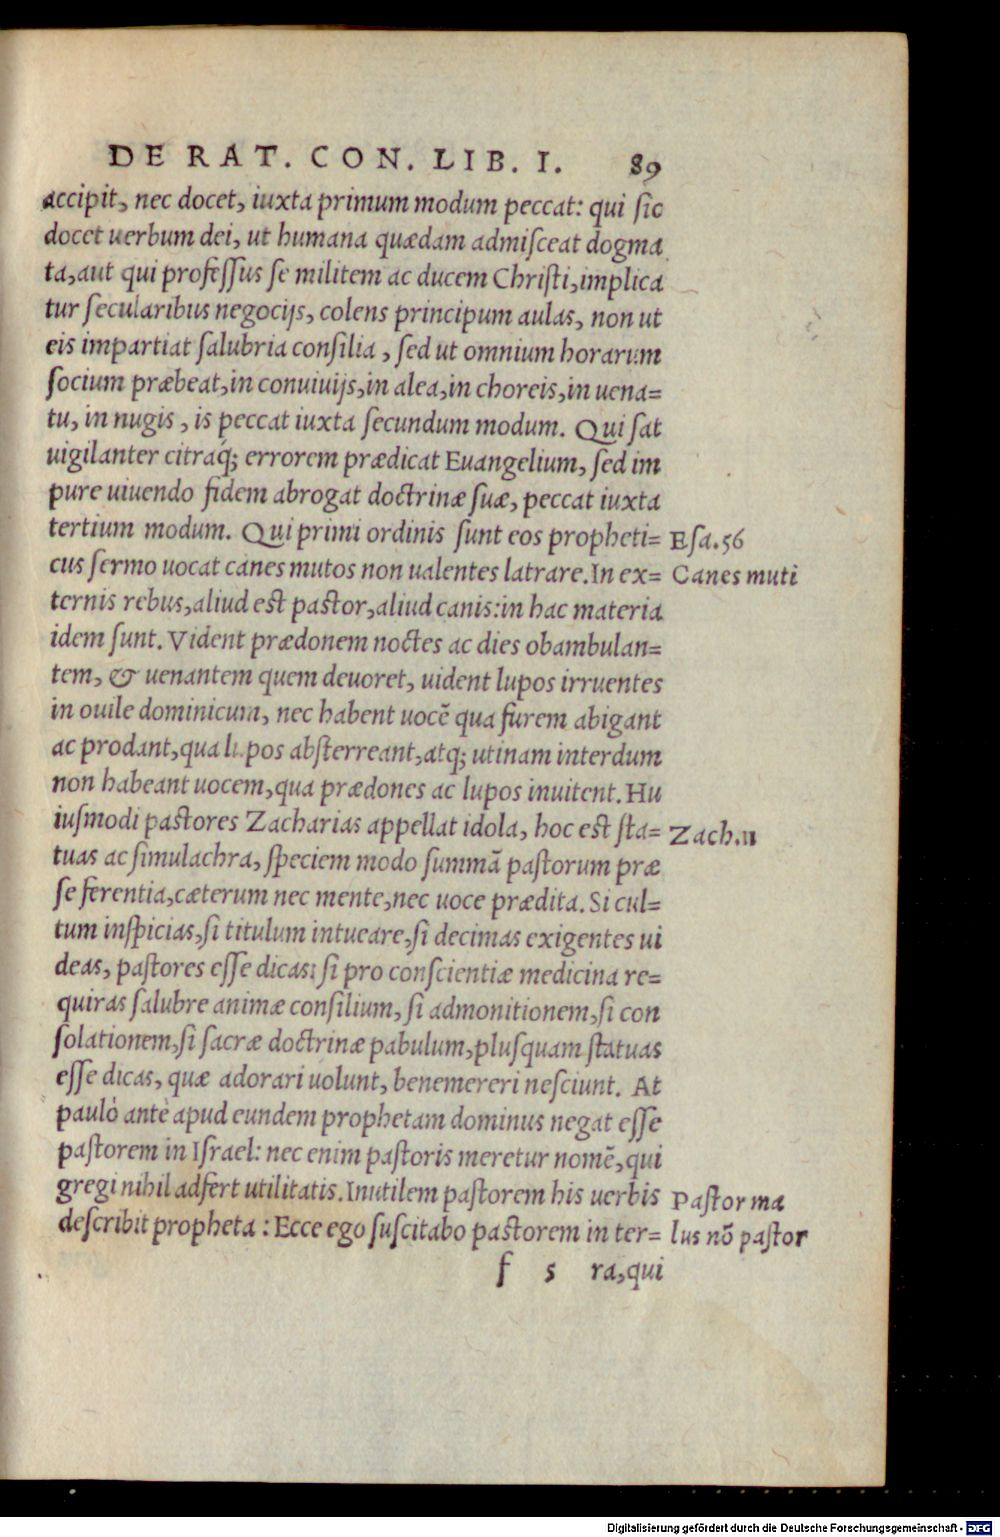 DE RAT. CON. LIB. I. 89
accipit, nec docet, iuxta primum modum peccat: qui sic
docet uerbum dei, ut humana quædam admisceat dogma
ta, aut qui professus se militem ac ducem Christi, implica
tur secularibus negocijs, colens principum aulas, non ut
eis impartiat salubria consilia, sed ut omnium horarum
socium præbeat, in conuiuijs, in alea, in choreis, in uena=
tu, in nugis, is peccat iuxta secundum modum. Qui sat
uigilanter citráq; errorem prædicat Euangelium, sed im
pure uiuendo fidem abrogat doctrinæ suæ, peccat iuxta
tertium modum. Qui primi ordinis sunt eos propheti= Esa.56
cus sermo uocat canes mutos non ualentes latrare. In ex= Canes muti
ternis rebus, aliud est pastor, aliud canis: in hac materia
idem sunt. Vident prædonem noctes ac dies obambulan=
tem, & uenantem quem deuoret, uident lupos irruentes
in ouile dominicum, nec habent uocē qua furem abigant
ac prodant, qua lupos absterreant, atq; utinam interdum
non habeant uocem, qua prædones ac lupos inuitent. Hu
iusmodi pastores Zacharias appellat idola, hoc est sta= Zach.11
tuas ac simulachra, speciem modo summā pastorum præ
se ferentia, cæterum nec mente, nec uoce prædita. Si cul=
tum inspicias, si titulum intueare, si decimas exigentes ui
deas, pastores esse dicas: si pro conscientiæ medicina re=
quiras salubre animæ consilium, si admonitionem, si con
solationem, si sacræ doctrinæ pabulum, plusquam statuas
esse dicas, quæ adorari uolunt, benemereri nesciunt. At
pauló antè apud eundem prophetam dominus negat esse
pastorem in Israel: nec enim pastoris meretur nomē, qui
gregi nihil adfert utilitatis. Inutilem pastorem his uerbis Pastor ma
describit propheta: Ecce ego suscitabo pastorem in ter= lus nō pastor
f 5 ra, qui
Digitalisierung gefördert durch die Deutsche Forschungsgemeinschaft - DFG